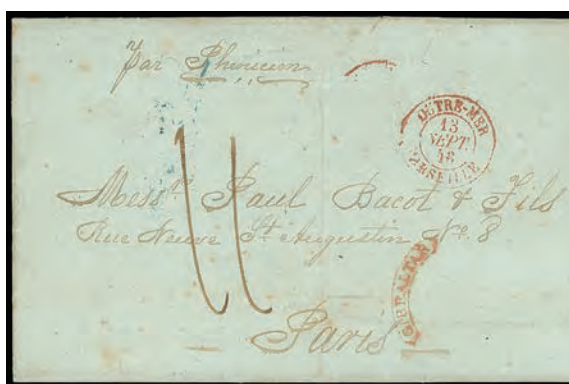 par Phenicien
OUTRE-MER
13
SEPT
48
MARSEILLE
11
Mess.rs Paul Bacot & Fils
Rue Neuve St Augustin No. 8
GIBRALTAR
Paris